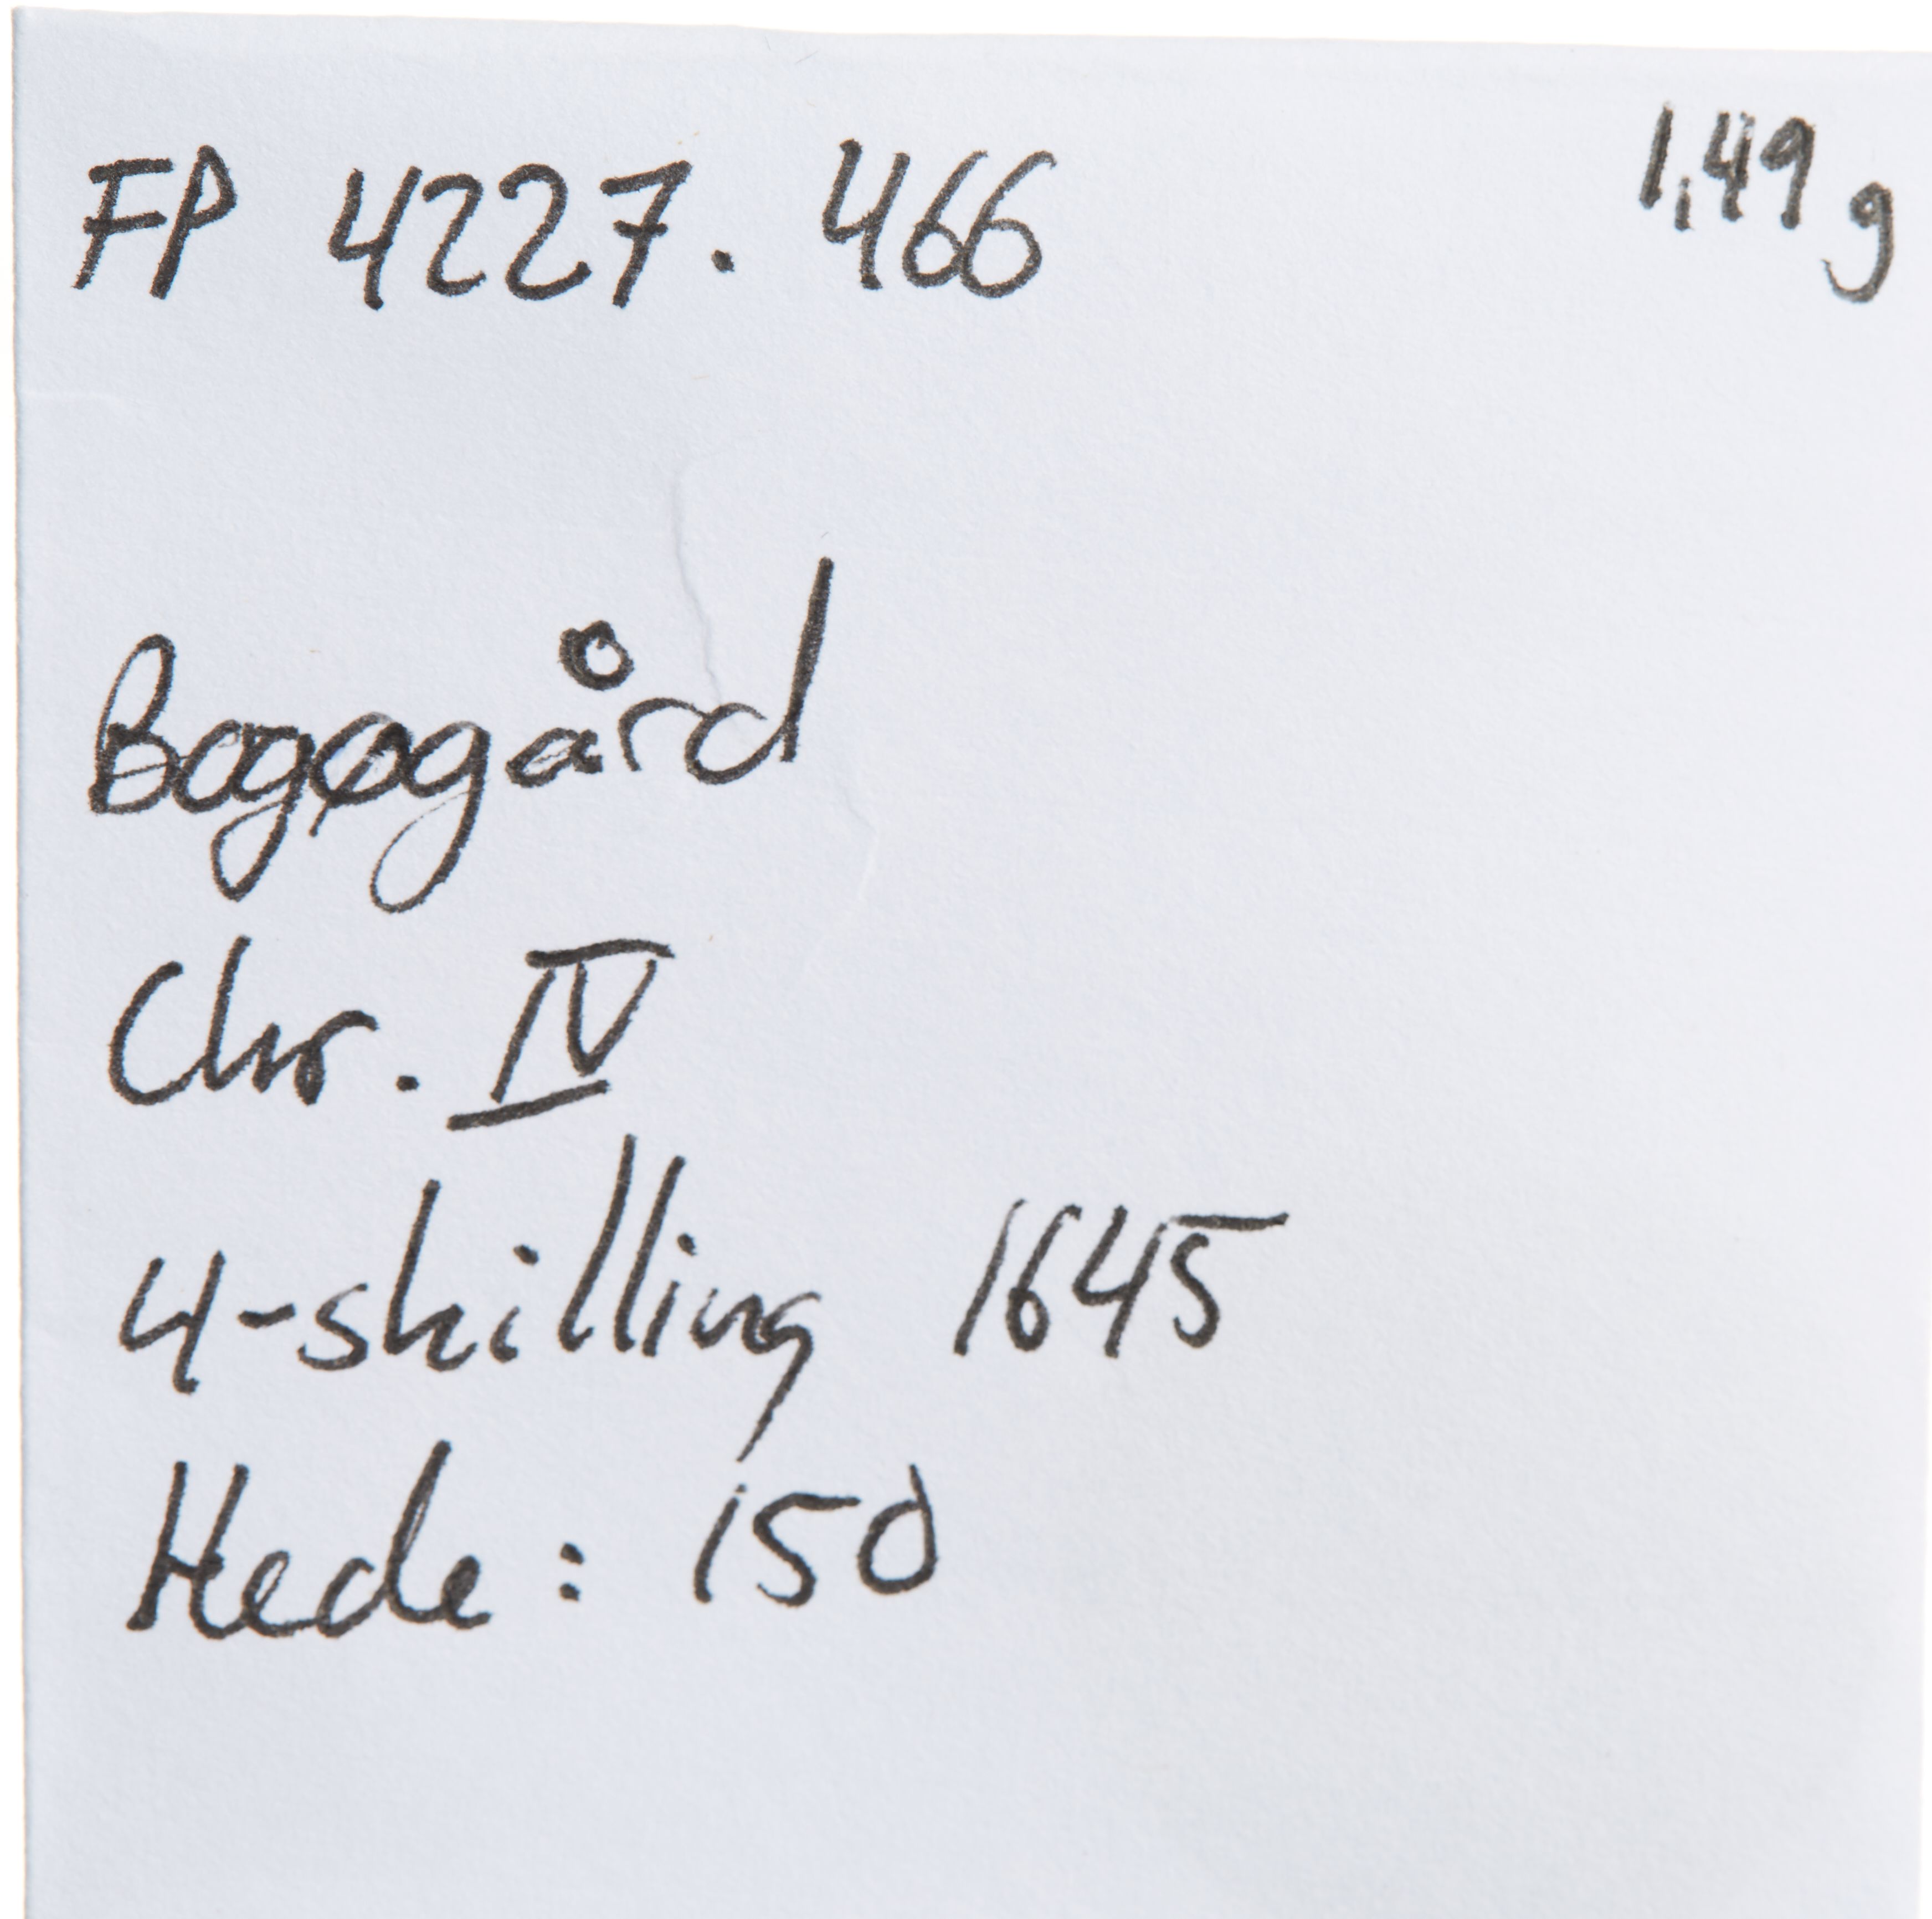 FP 4227. 466 1,49 g
Bogøgård
Chr. IV
4-skilling 1645
Hede: 150